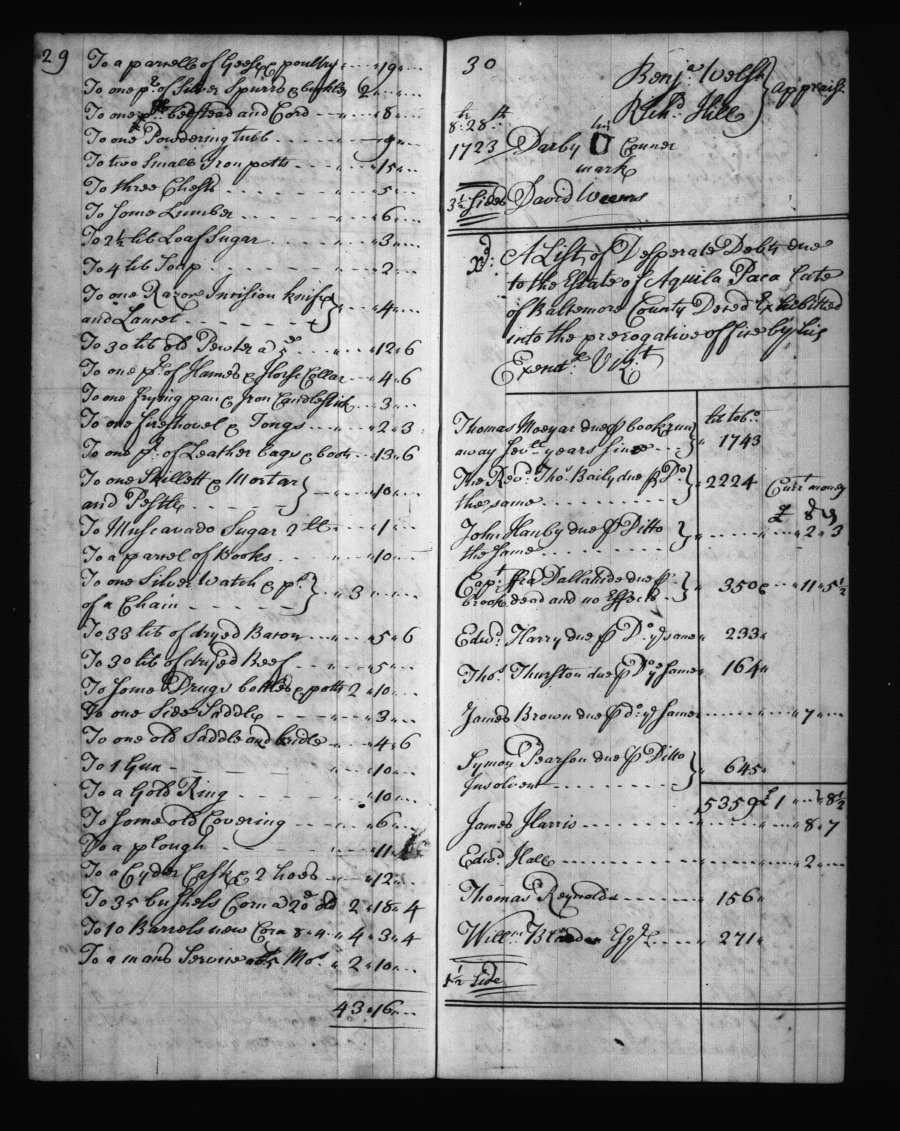 29
To a parcell of Geese & poultry .. „ 19 „ ..
To one pr. of Silver Spurrs & buckles 2 „ .. „ ..
To one bedstead and Cord --- „ 8 „ ..
To one Powdering tubb - - - „ 9 „ ..
To two Small Iron potts - - - „ 15 „ ..
To three Chests - - - - „ 5 „ ..
To Some Lumber - - - - „ 6 „ ..
To 2½ lib Loaf Sugar - - - - „ 3 „ ..
To 4 lib Soap - - - - „ 2 „ ..
To one Razor Incision knife }
and Lancet - - - - - - } „ 4 „ ..
To 30 lib old Pewter a 5d - - - „ 12 „ 6
To one pr. of Hames & Horse Collar - „ 4 „ 6
To one frying pan & Iron Candlestick „ 3 „ ..
To one fireshovel & Tongs - - - „ 2 „ 3
To one pr. of Leather bags & „ 13 „ 6
To one Skillett & Mortar }
and Pestle - - - - } „ 10 „ ..
To Muscavado Sugar 2 lb - - „ 1 „ ..
To a parcel of Books - - - „ 10 „ ..
To one Silver Watch & ps }
of a Chain - - - - - } „ 3 „ .. „ ..
To 33 lib of dryed Bacon - - - „ 5 „ 6
To 30 lib of dryed Beef - - - „ 5 „ ..
To Some Drugs bottles & potts 2 „ 10 „ ..
To one Side Saddle - - - - „ 3 „ ..
To one old Saddle and bridle - - „ 4 „ 6
To 1 Gun - - - - - „ 10 „ ..
To a Gold Ring - - - - „ 10 „ ..
To Some old Covering - - - „ 6 „ ..
To a plough - - - - „ 11 „
To a Cyder Cask & 2 hoes - - „ 12 „ ..
To 35 bushels Corn a 20d old 2 „ 18 „ 4
To 10 Barrels new Corn 8 „ 4 - „ 4 „ 3 „ 4
To a mans Service Mos. „ 2 „ 10 „ ..
43 „ 16 „ ..
30
Benja. Welsh }
Richd. Hill } appraisr.
8br 28th
1723 his
Darby Conner
mark
3½ Sides David Weems
Xd: A List of Desperate Debts due
to the Estate of Aquila Paca late
of Baltemore County Deced Exhibitted
into the prerogative office by his
Execut. Vizt
lib tobo.
Thomas due p book run }
away sevll years since - } „ 1743
The Revd. Thos. Baily due p Do }
the same - - - - - } „ 2224
Currt money
£ s d
John Hanby due p Ditto }
the same - - - - } „ - - - „ .. „ 2 „ 3
Capt. due p }
book dead and no Effects - } „ 350 „ .. „ 11 „ 5½
Edwd. Harry due p Do. ye same „ 233 „
Thos. Thurston due p Do ye Same „ 164 „
James Brown due p do ye Same - - - - „ 7 „ ..
Symon Pearson due p Ditto }
Insolvent - - - - - } „ 645 „
5359 £ 1 „ .. „ 8½
James Harris - - - - - - „ - - - „ .. „ 8 „ 7
Edwd. Hall - - - - - - - - - „ .. „ 2 „ ..
Thomas Reynolds - - - - 156 „
Willm. Bladen Esqr. - - - „ 271 „
1½ Side